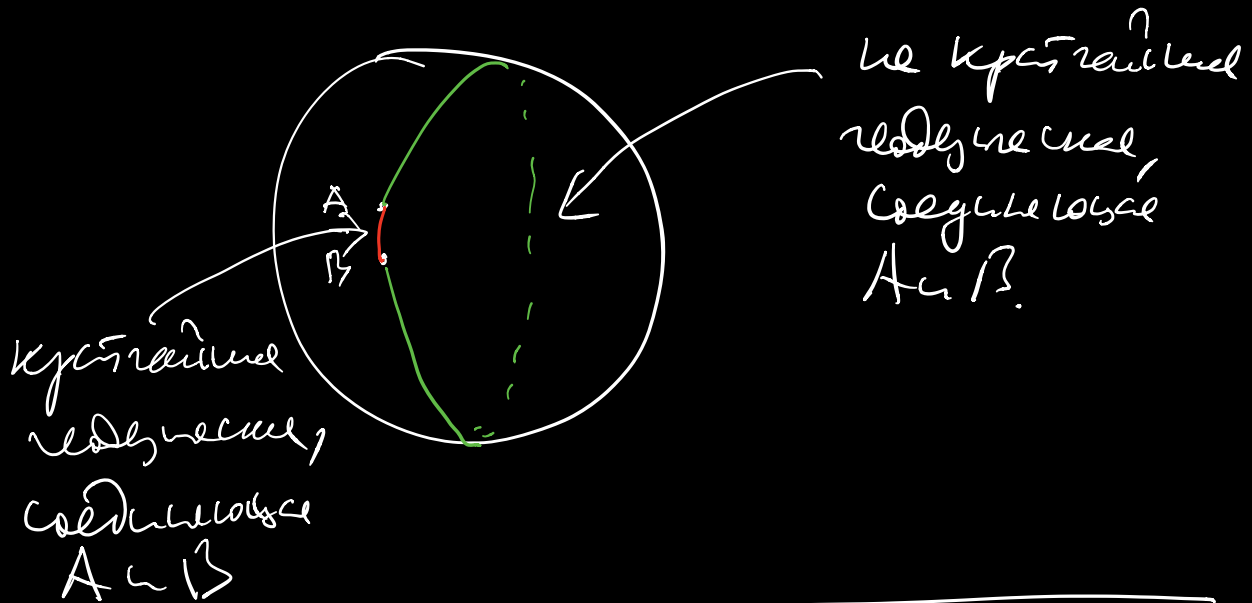 А
В
кратчайшая
геодезическая,
соединяющая
А и В
не кратчайшая
геодезическая,
соединяющая
А и В.